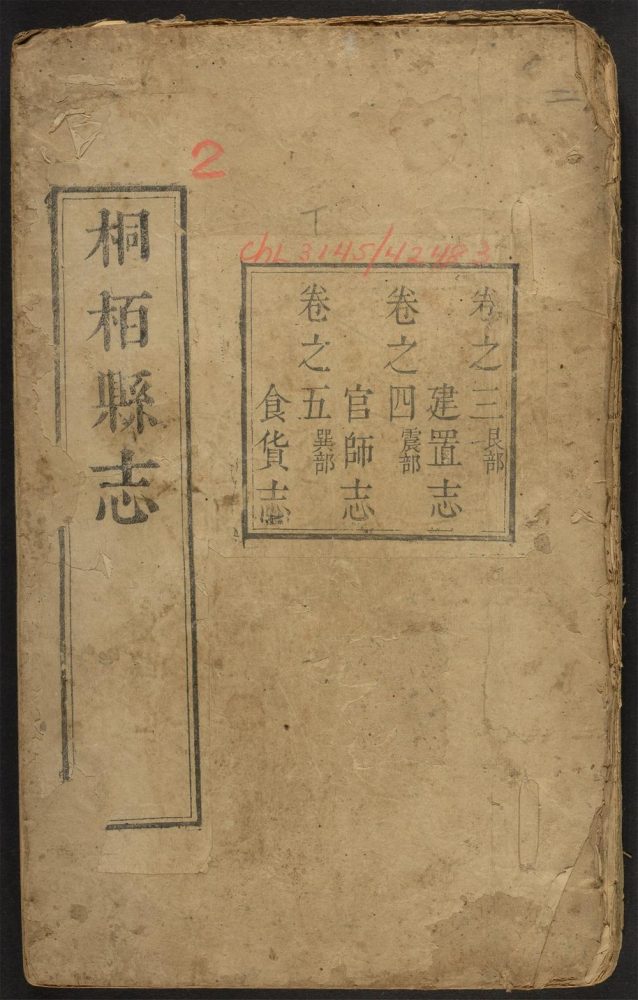 2
二
丁
chL 3145/4248 3
卷之三艮部
建置志
卷之四震部
官師志
卷之五巽部
食貨志
桐栢縣志